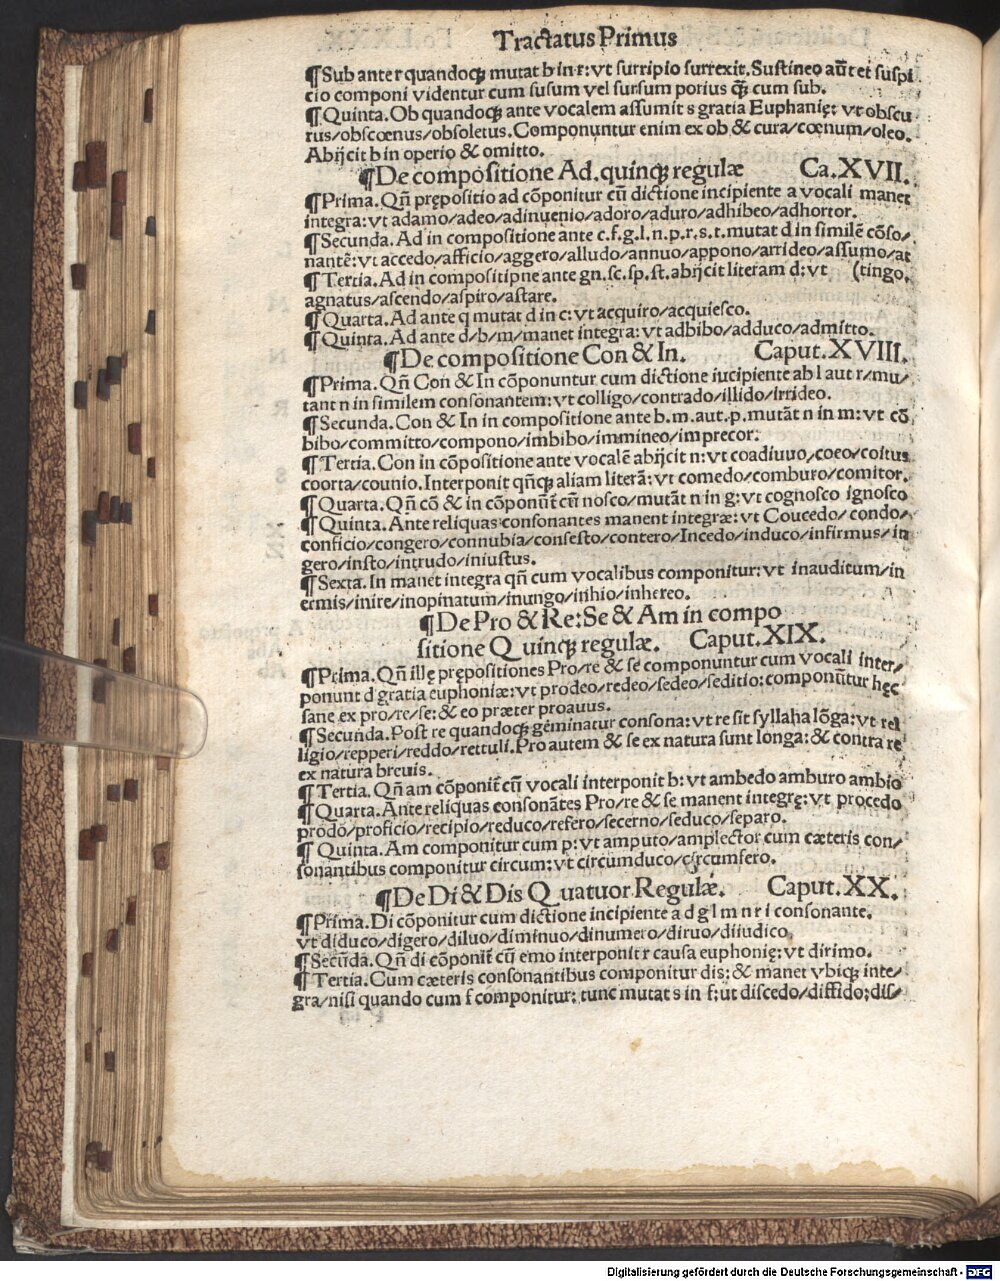 Tractatus Primus
¶Sub ante r quandoqʒ mutat b in r: vt surripio surrexit. Sustineo aūt et suspi
cio componi videntur cum susum vel sursum potius q̄ʒ cum sub.
¶Quinta. Ob quandoqʒ ante vocalem assumit s gratia Euphanię: vt obscu
rus/obscœnus/obsoletus. Componuntur enim ex ob & cura/cœnum/oleo.
Abijcit b in operio & omitto.
¶De compositione Ad. quinqʒ regulæ Ca.XVII.
¶Prima. Qn̄ prępositio ad cōponitur cū dictione incipiente a vocali manet
integra: vt adamo/adeo/adinuenio/adoro/aduro/adhibeo/adhortor.
¶Secunda. Ad in compositione ante c.f.g.l.n.p.r.s.t.mutat d in similē cōso/
nantē: vt accedo/afficio/aggero/alludo/annuo/appono/arrideo/assumo/at
¶Tertia. Ad in compositipne ante gn.sc.sp.st.abijcit literam d: vt (tingo.
agnatus/ascendo/aspiro/astare.
¶Quarta. Ad ante q mutat d in c: vt acquiro/acquiesco.
¶Quinta. Ad ante d/b/m/manet integra: vt adbibo/adduco/admitto.
¶De compositione Con & In. Caput.XVIII.
¶Prima. Qn̄ Con & In cōponuntur cum dictione iucipiente ab l aut r/mu/
tant n in similem consonantem: vt colligo/contrado/illido/irrideo.
¶Secunda. Con & In in compositione ante b.m.aut.p.mutāt n in m: vt cō
bibo/committo/compono/imbibo/immineo/imprecor:
¶Tertia. Con in cōpositione ante vocalē abijcit n: vt coadiuuo/coeo/coitus
coorta/counio. Interponit qn̄qʒ aliam literā: vt comedo/comburo/comitor.
¶Quarta. Qn̄ cō & in cōponūt̄ cū nosco/mutāt n in g: vt cognosco ignosco
¶Quinta. Ante reliquas consonantes manent integræ: vt Coucedo/condo/
conficio/congero/connubia/consesto/contero/Incedo/induco/infirmus/in
gero/insto/intrudo/iniustus.
¶Sexta. In manet integra qn̄ cum vocalibus componitur: vt inauditum/in
ermis/inire/inopinatum/inungo/inhio/inhereo.
¶De Pro & Re: Se & Am in compo
sitione Quinqʒ regulæ. Caput.XIX.
¶Prima. Qn̄ illę prępositiones Pro/re & se componuntur cum vocali inter/
ponunt d gratia euphoniæ: vt prodeo/redeo/sedeo/seditio: componūtur hęc
sane ex pro/re/se: & eo præter proauus.
¶Secunda. Post re quandoqʒ geminatur consona: vt re sit syllaha lōga: vt rel
ligio/repperi/reddo/rettuli. Pro autem & se ex natura sunt longa: & contra re
ex natura breuis.
¶Tertia. Qn̄ am cōponit̄ cū vocali interponit b: vt ambedo amburo ambio
¶Quarta. Ante reliquas consonātes Pro/re & se manent integrę: vt procedo
prodo/proficio/recipio/reduco/refero/secerno/seduco/separo.
¶Quinta. Am componitur cum p: vt amputo/amplector cum cæteris con/
sonantibus componitur circum: vt circumduco/circumfero.
¶De Di & Dis Quatuor Regulæ. Caput.XX.
¶Prima. Di cōponitur cum dictione incipiente a d g l m n r i consonante.
vt diduco/digero/diluo/diminuo/dinumero/diruo/diiudico.
¶Secūda. Qn̄ di cōponit̄ cū emo interponit r causa euphonię: vt dirimo.
¶Tertia. Cum cæteris consonantibus componitur dis: & manet vbiqʒ inte/
gra/nisi quando cum f componitur: tunc mutat s in f: ut discedo/diffido: dis/
Digitalisierung gefördert durch die Deutsche Forschungsgemeinschaft - DFG